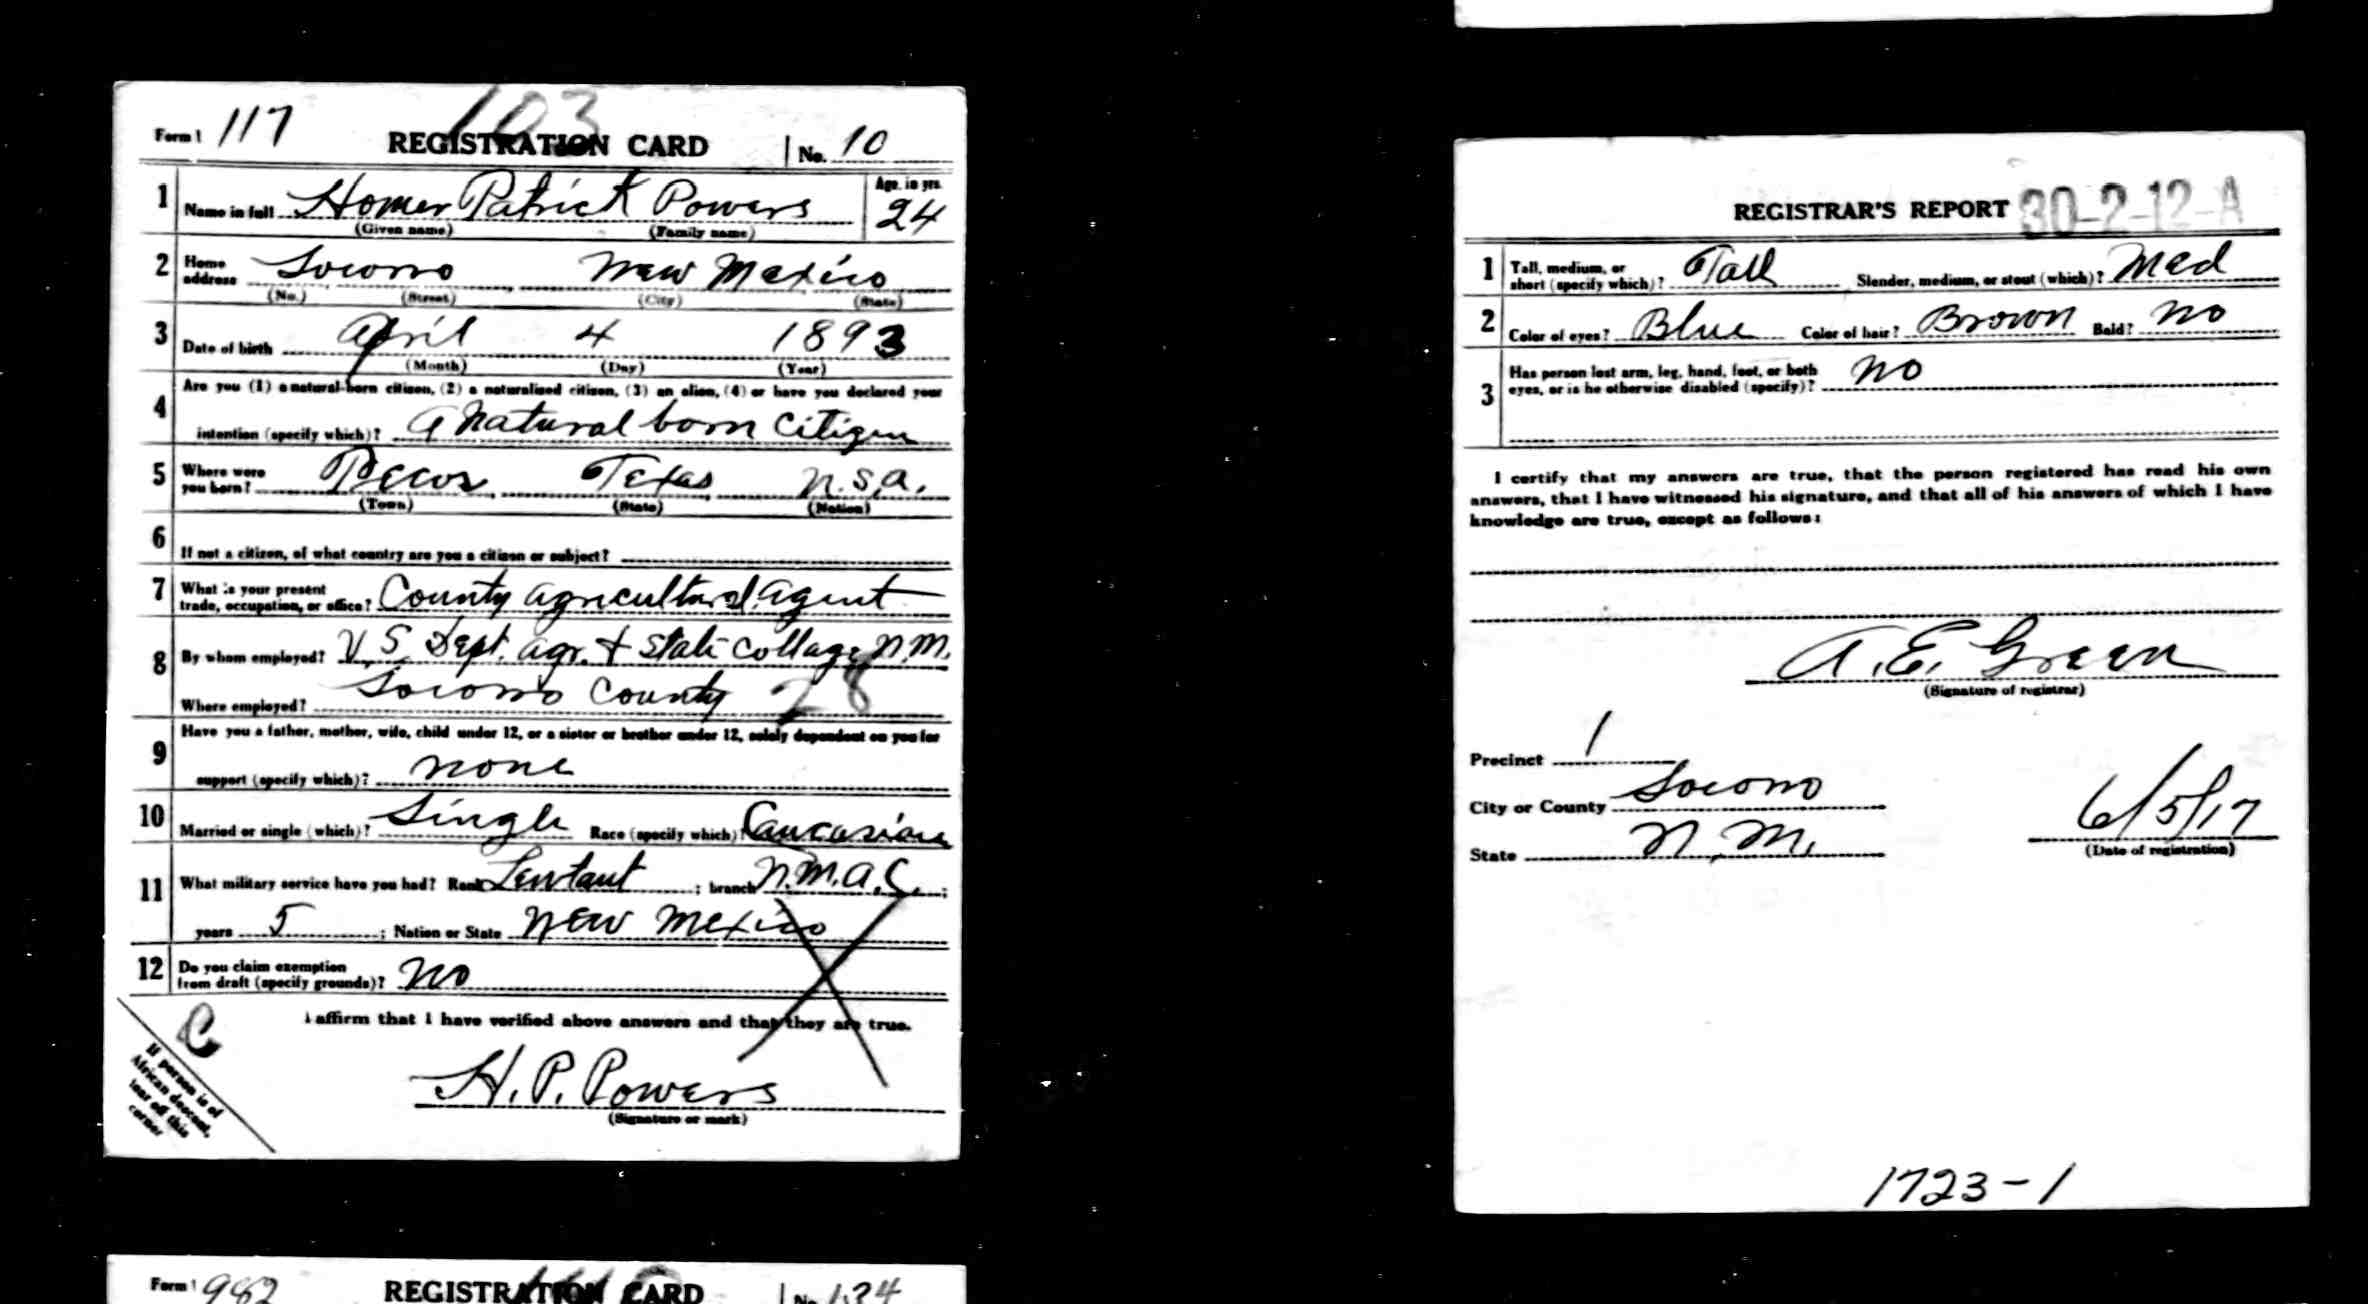 103
Form 1 117 REGISTRATION CARD No. 10
1 Name in full Homer Patrick Powers Age, in yrs. 24
(Given name) (Family name)
2 Home address Socorro New Mexico
(No.) (Street) (City) (State)
3 Date of birth April 4 1893
(Month) (Day) (Year)
4 Are you (1) a natural-born citizen, (2) a naturalized citizen, (3) an alien, (4) or have you declared your
intention (specify which)? A Natural born Citizen
5 Where were you born? Pecos Texas U.S.A.
(Town) (State) (Nation)
6 If not a citizen, of what country are you a citizen or subject?
7 What is your present trade, occupation, or office? County Agricultural Agent
8 By whom employed? U.S. Dept. Agr. & State College N.M.
Where employed? Socorro County 28
9 Have you a father, mother, wife, child under 12, or a sister or brother under 12, solely dependent on you for
support (specify which)? none
10 Married or single (which)? Single Race (specify which)? Caucasian
11 What military service have you had? Rank Leutant ; branch N.M.A.C. ;
years 5 ; Nation or State New Mexico
12 Do you claim exemption from draft (specify grounds)? No
I affirm that I have verified above answers and that they are true.
C
H. P. Powers
(Signature or mark)
If person is of
African descent,
tear off this
corner
Form 1 982 REGISTRATION CARD No. 134
REGISTRAR'S REPORT 30-2-12-A
1 Tall, medium, or short (specify which)? Tall Slender, medium, or stout (which)? Med
2 Color of eyes? Blue Color of hair? Brown Bald? No
3 Has person lost arm, leg, hand, foot, or both
eyes, or is he otherwise disabled (specify)? No
I certify that my answers are true, that the person registered has read his own
answers, that I have witnessed his signature, and that all of his answers of which I have
knowledge are true, except as follows:
A. E. Green
(Signature of registrar)
Precinct 1
City or County Socorro
State N. M.
6/5/17
(Date of registration)
1723-1